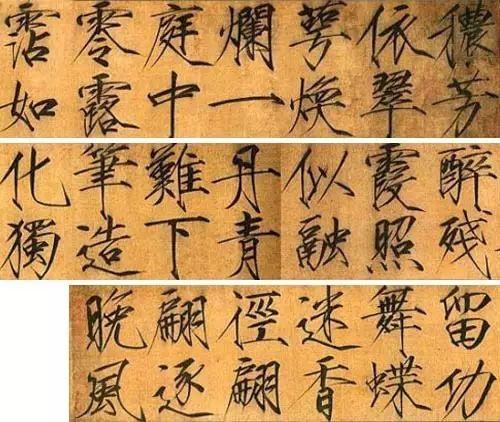 穠芳
依翠
萼煥
爛一
庭中
零露
霑如
醉残
霞照
似融
丹青
難下
筆造
化獨
留功
舞蝶
迷香
徑翩
翩逐
晚風